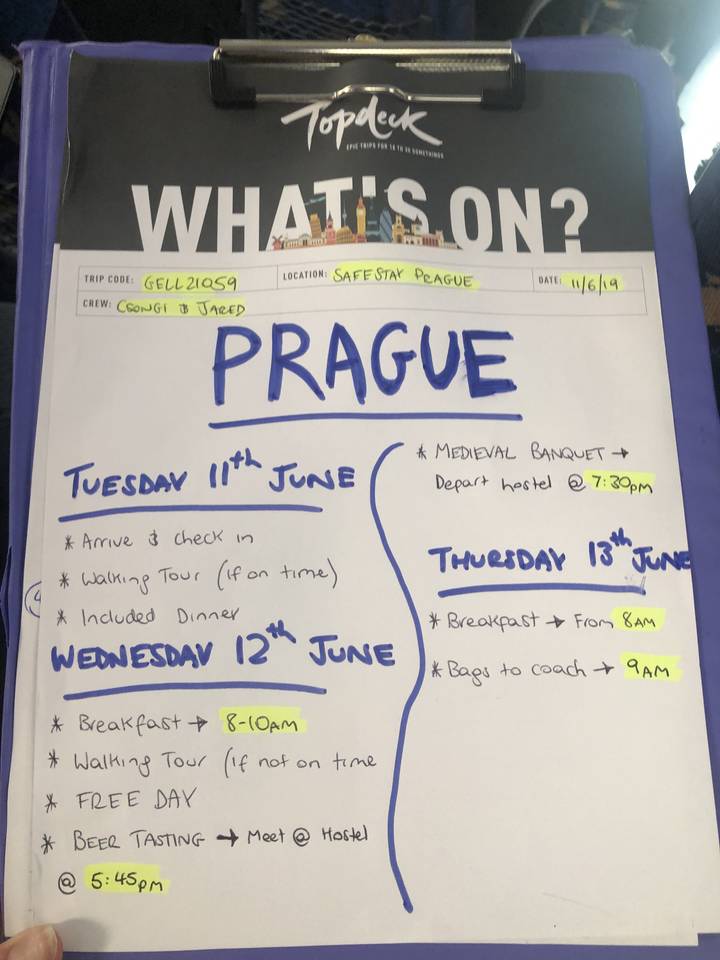 Topdeck
EPIC TRIPS FOR 18 TO 30 SOMETHINGS
WHAT'S ON?
TRIP CODE: GELL21059 LOCATION: SAFESTAY PRAGUE DATE: 11/6/19
CREW: CSONGI & JARED
PRAGUE
TUESDAY 11th JUNE
* Arrive & check in
* Walking Tour (if on time)
* Included Dinner
WEDNESDAY 12th JUNE
* Breakfast → 8-10AM
* Walking Tour (if not on time
* FREE DAY
* BEER TASTING → Meet @ Hostel
@ 5:45pm
* MEDIEVAL BANQUET →
Depart hostel @ 7:30pm
THURSDAY 13th JUNE
* Breakfast → From 8AM
* Bags to coach → 9AM